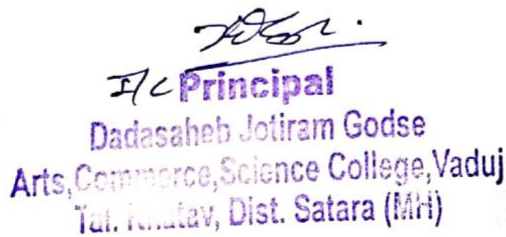 I/c Principal
Dadasaheb Jotiram Godse
Arts,Commerce,Science College,Vaduj
Tal. Khatav, Dist. Satara (MH)